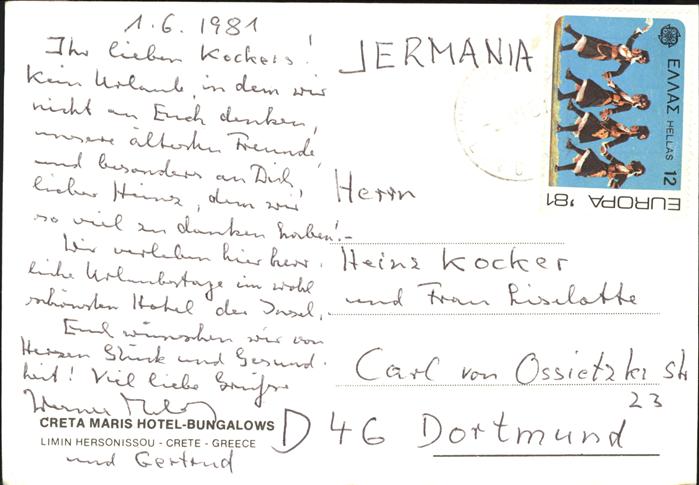 1.6.1981
Ihr lieben Kockers!
Kein Urlaub, in dem wir
nicht an Euch denken,
unsere ältesten Freunde
und besonders an Dich,
lieber Heinz, dem wir
so viel zu danken haben!-
Wir verleben hier herr-
liche Urlaubstage im wohl
schönsten Hotel der Insel,
Euch wünschen wir von
Herzen Glück und Gesund-
heit! Viel liebe Grüße
Werner
und Gertrud
CRETA MARIS HOTEL-BUNGALOWS
LIMIN HERSONISSOU - CRETE - GREECE
JERMANIA
Herrn
Heinz Kocker
und Frau Liselotte
Carl von Ossietzki Str
23
D 46 Dortmund
ΕΛΛΑΣ HELLAS 12
EUROPA '81